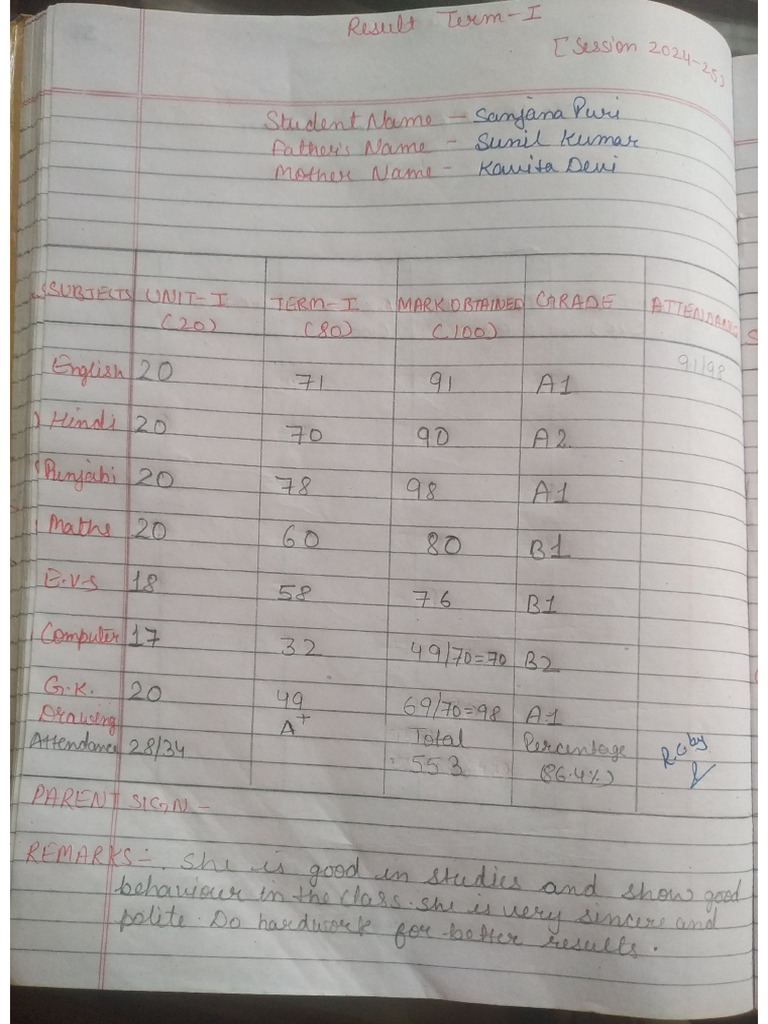 Result Term-I
[Session 2024-25)
Student Name - Sanjana Puri
Father's Name - Sunil Kumar
Mother Name - Kavita Devi
SUBJECTS UNIT-I TERM-I MARK OBTAINED GRADE ATTENDANCE
(20) (80) (100)
English 20 71 91 A1 91/98
Hindi 20 70 90 A2
Punjabi 20 78 98 A1
Maths 20 60 80 B1
E.V.S 18 58 76 B1
Computer 17 32 49/70=70 B2
G.K. 20 49 69/70=98 A1
Drawing A+ Total Percentage
Attendance 28/34 553 (86.4%)
PARENT SIGN-
REMARKS- She is good in studies and show good
behaviour in the class. She is very sincere and
polite. Do hardwork for better results.